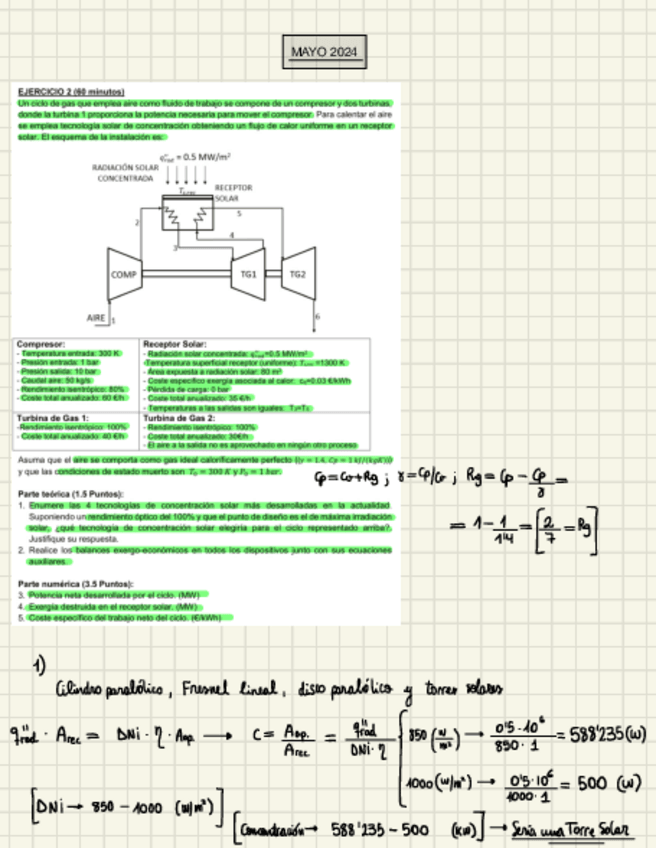 MAYO 2024
EJERCICIO 2 (60 minutos)
Un ciclo de gas que emplea aire como fluido de trabajo se compone de un compresor y dos turbinas,
donde la turbina 1 proporciona la potencia necesaria para mover el compresor. Para calentar el aire
se emplea tecnología solar de concentración obteniendo un flujo de calor uniforme en un receptor
solar. El esquema de la instalación es:
q''rad = 0.5 MW/m²
RADIACIÓN SOLAR
CONCENTRADA
RECEPTOR
SOLAR
2
5
4
3
COMP
TG1
TG2
AIRE 1
6
Compresor:
- Temperatura entrada: 300 K
- Presión entrada: 1 bar
- Presión salida: 10 bar
- Caudal aire: 50 kg/s
- Rendimiento isentrópico: 80%
- Coste total anualizado: 60 €/h
Receptor Solar:
- Radiación solar concentrada: q''rad=0.5 MW/m²
- Temperatura superficial receptor (uniforme): =1300 K
- Área expuesta a radiación solar: 80 m²
- Coste específico exergía asociada al calor: =0.03 €/kWh
- Pérdida de carga: 0 bar
- Coste total anualizado: 35 €/h
- Temperaturas a las salidas son iguales:
Turbina de Gas 1:
- Rendimiento isentrópico: 100%
- Coste total anualizado: 40 €/h
Turbina de Gas 2:
- Rendimiento isentrópico: 100%
- Coste total anualizado: 30€/h
- El aire a la salida no es aprovechado en ningún otro proceso
Asuma que el aire se comporta como gas ideal caloríficamente perfecto ((γ = 1.4, Cp = 1 kJ/(kgK))
y que las condiciones de estado muerto son T₀ = 300 K y P₀ = 1 bar.
Cp=Cv+Rg ; γ=Cp/Cv ; Rg = Cp - Cp/γ =
= 1 - 1/1'4 = [2/7 = Rg]
Parte teórica (1.5 Puntos):
1. Enumere las 4 tecnologías de concentración solar más desarrolladas en la actualidad.
Suponiendo un rendimiento óptico del 100% y que el punto de diseño es el de máxima irradiación
solar, ¿qué tecnología de concentración solar elegiría para el ciclo representado arriba?.
Justifique su respuesta.
2. Realice los balances exergo-económicos en todos los dispositivos junto con sus ecuaciones
auxiliares.
Parte numérica (3.5 Puntos):
3. Potencia neta desarrollada por el ciclo. (MW)
4. Exergía destruida en el receptor solar. (MW)
5. Coste específico del trabajo neto del ciclo. (€/kWh)
1)
Cilindro parabólico, Fresnel lineal, disco parabólico y torres solares
q''rad · Arec = DNi · η · Aap. → C = Aap./Arec = q''rad/DNi·η
850 (w/m²) → 0'5·10⁶/850·1 = 588'235 (w)
1000 (w/m²) → 0'5·10⁶/1000·1 = 500 (w)
[DNi → 850 - 1000 (w/m²)]
[Concentración → 588'235 - 500 (kw)] → Sería una Torre Solar